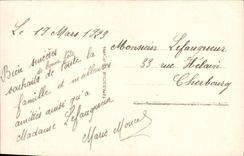 Le 19 Mars 1929
Bien
souhaits de toute la
famille et meilleures
amitiés ainsi qu'à
Madame Lefaugueur
Marie
Monsieur Lefaugueur
33 rue Hélain
Cherbourg